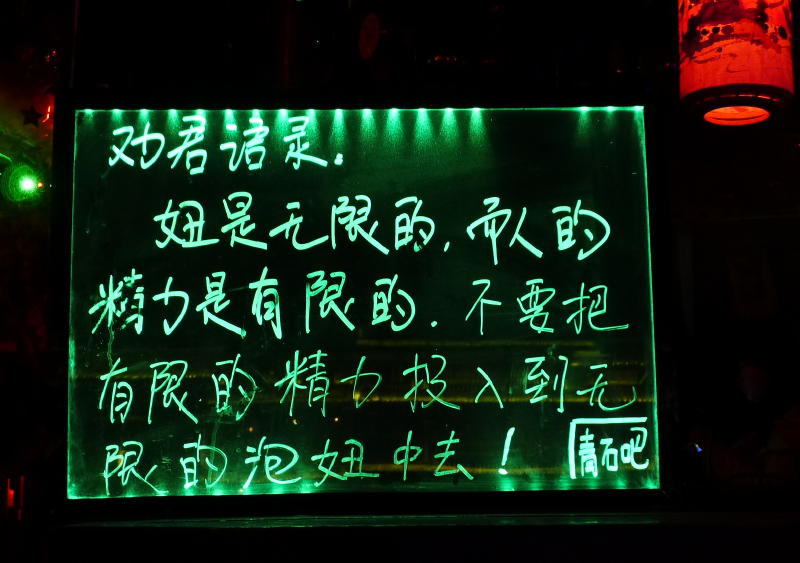 劝君语录.
妞是无限的,而人的
精力是有限的.不要把
有限的精力投入到无
限的泡妞中去!
青石吧